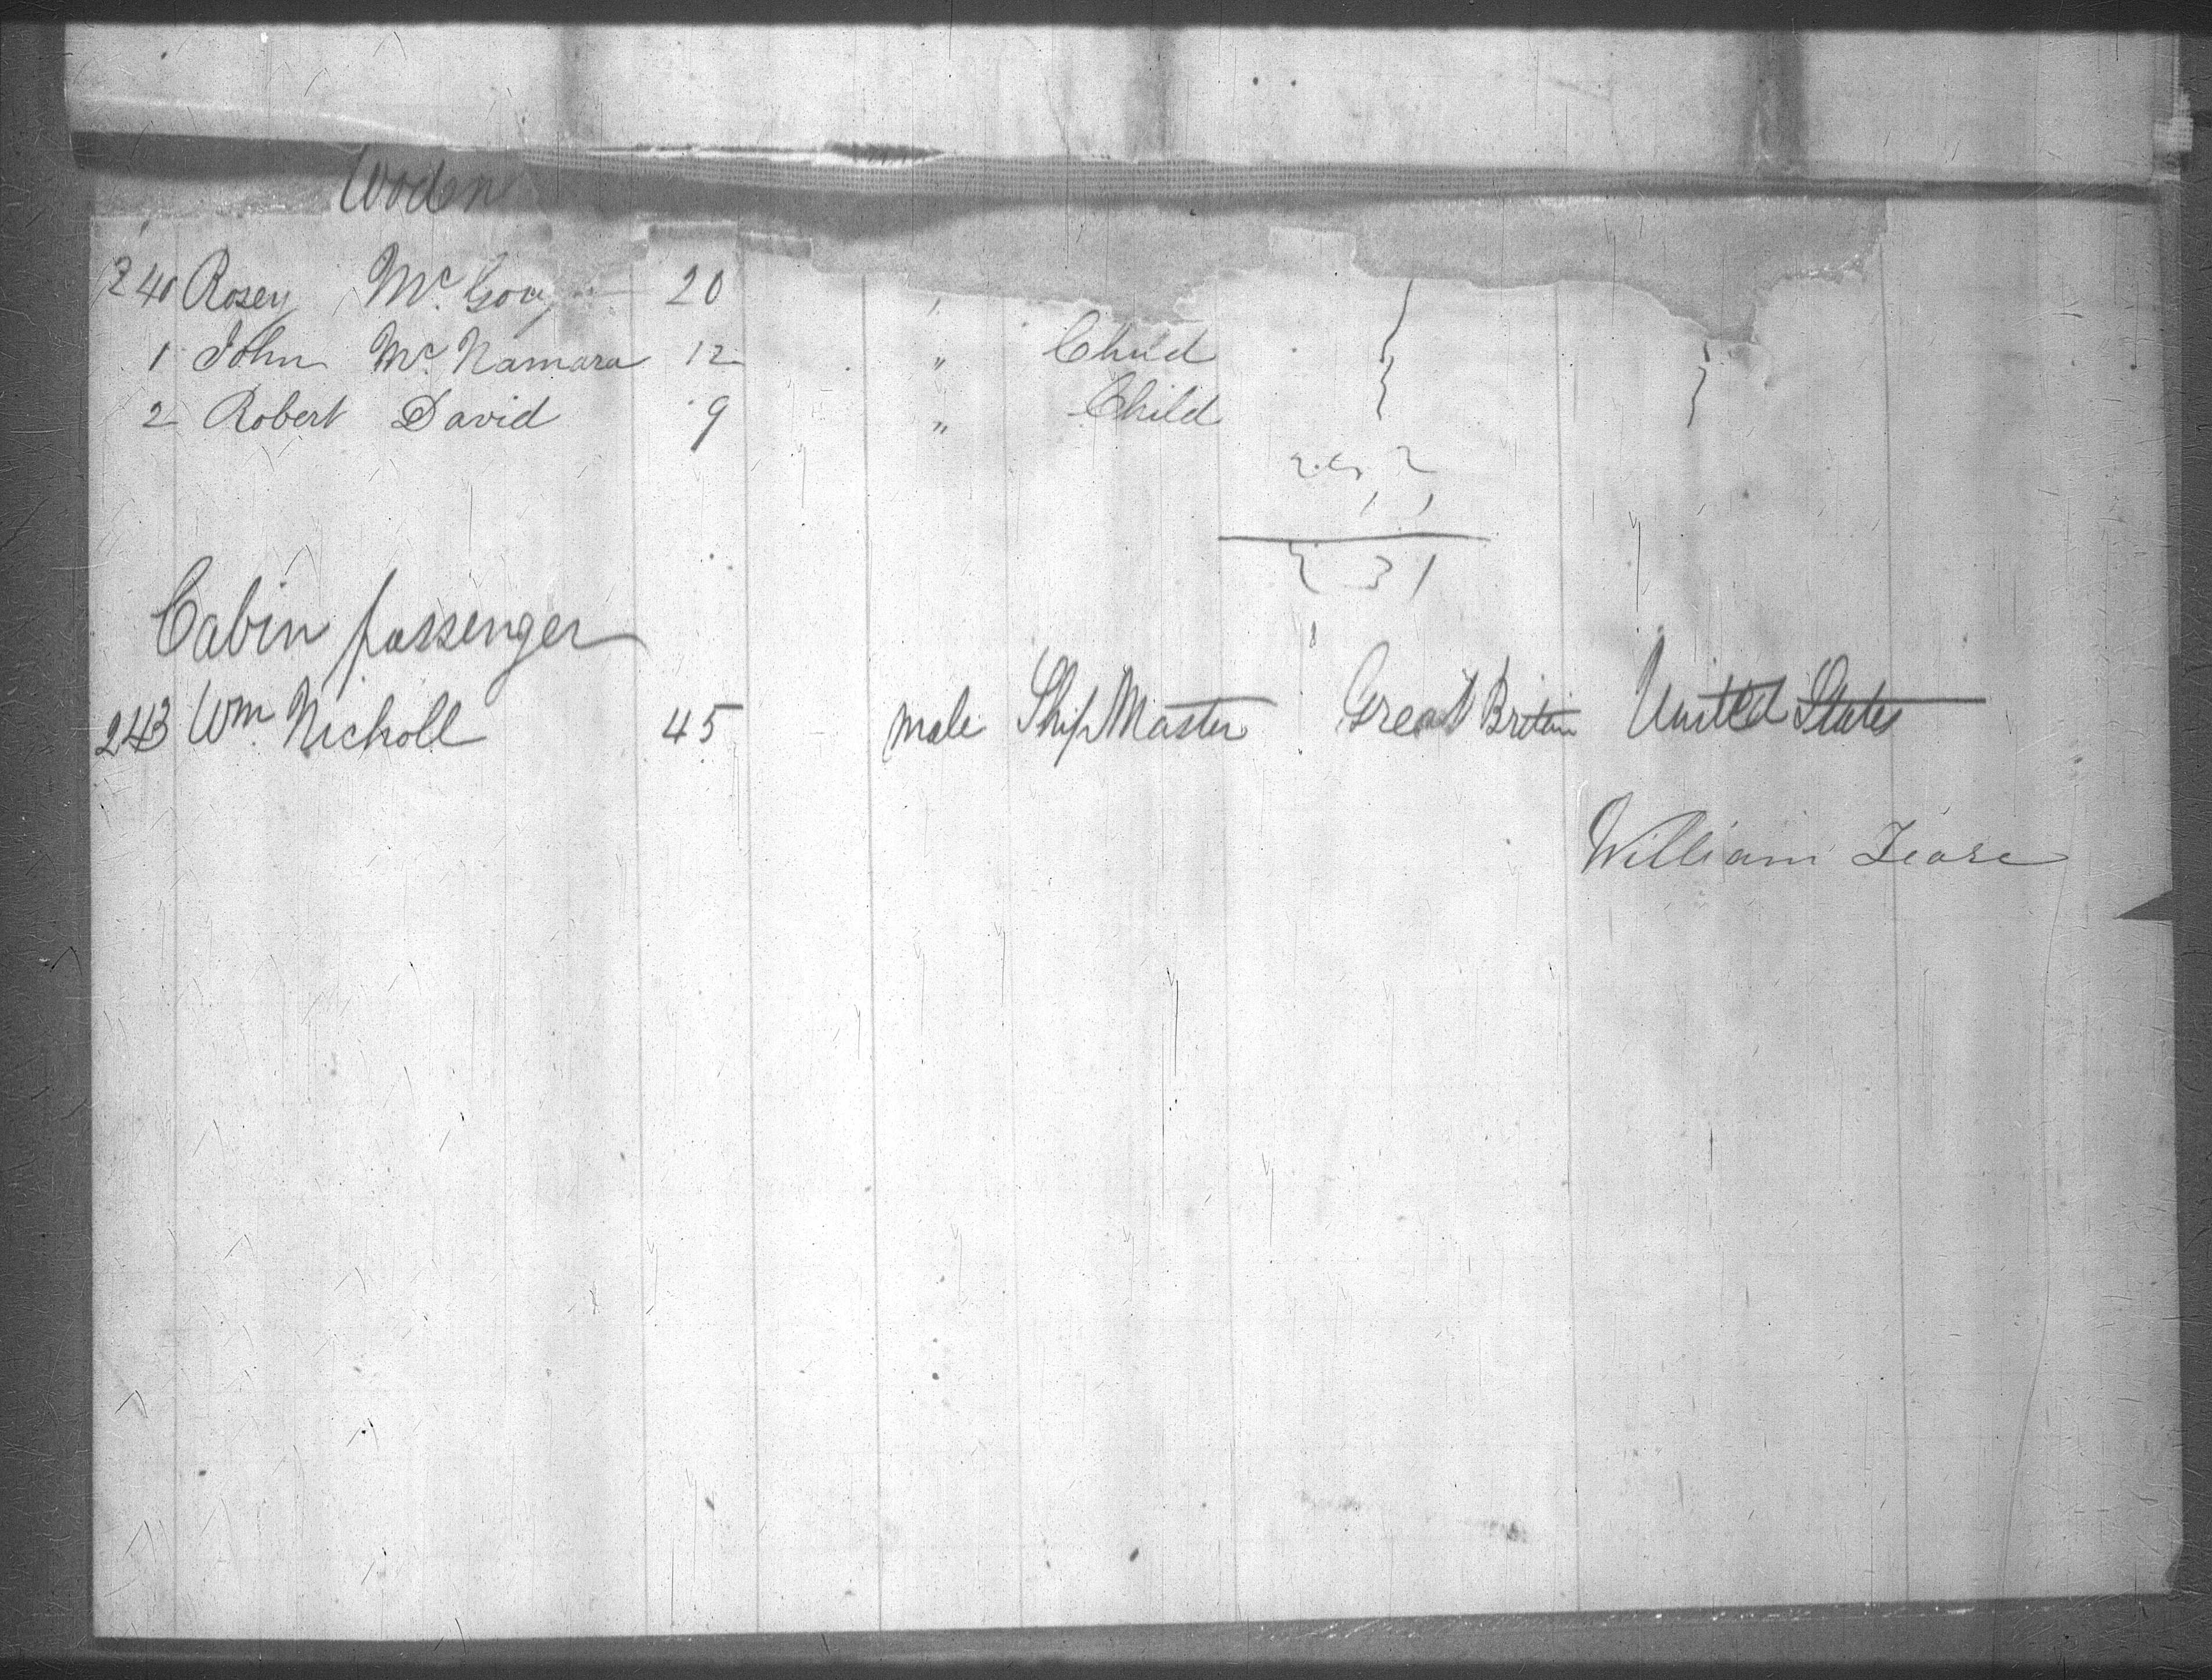 Woden
240 Rosey Mc. Goey 20 "
1 John Mc. Namara 12 " Child
2 Robert David 9 " Child
31
Cabin passenger
243 Wm Nicholl 45 male Ship Master Great Britain United States
William Tease